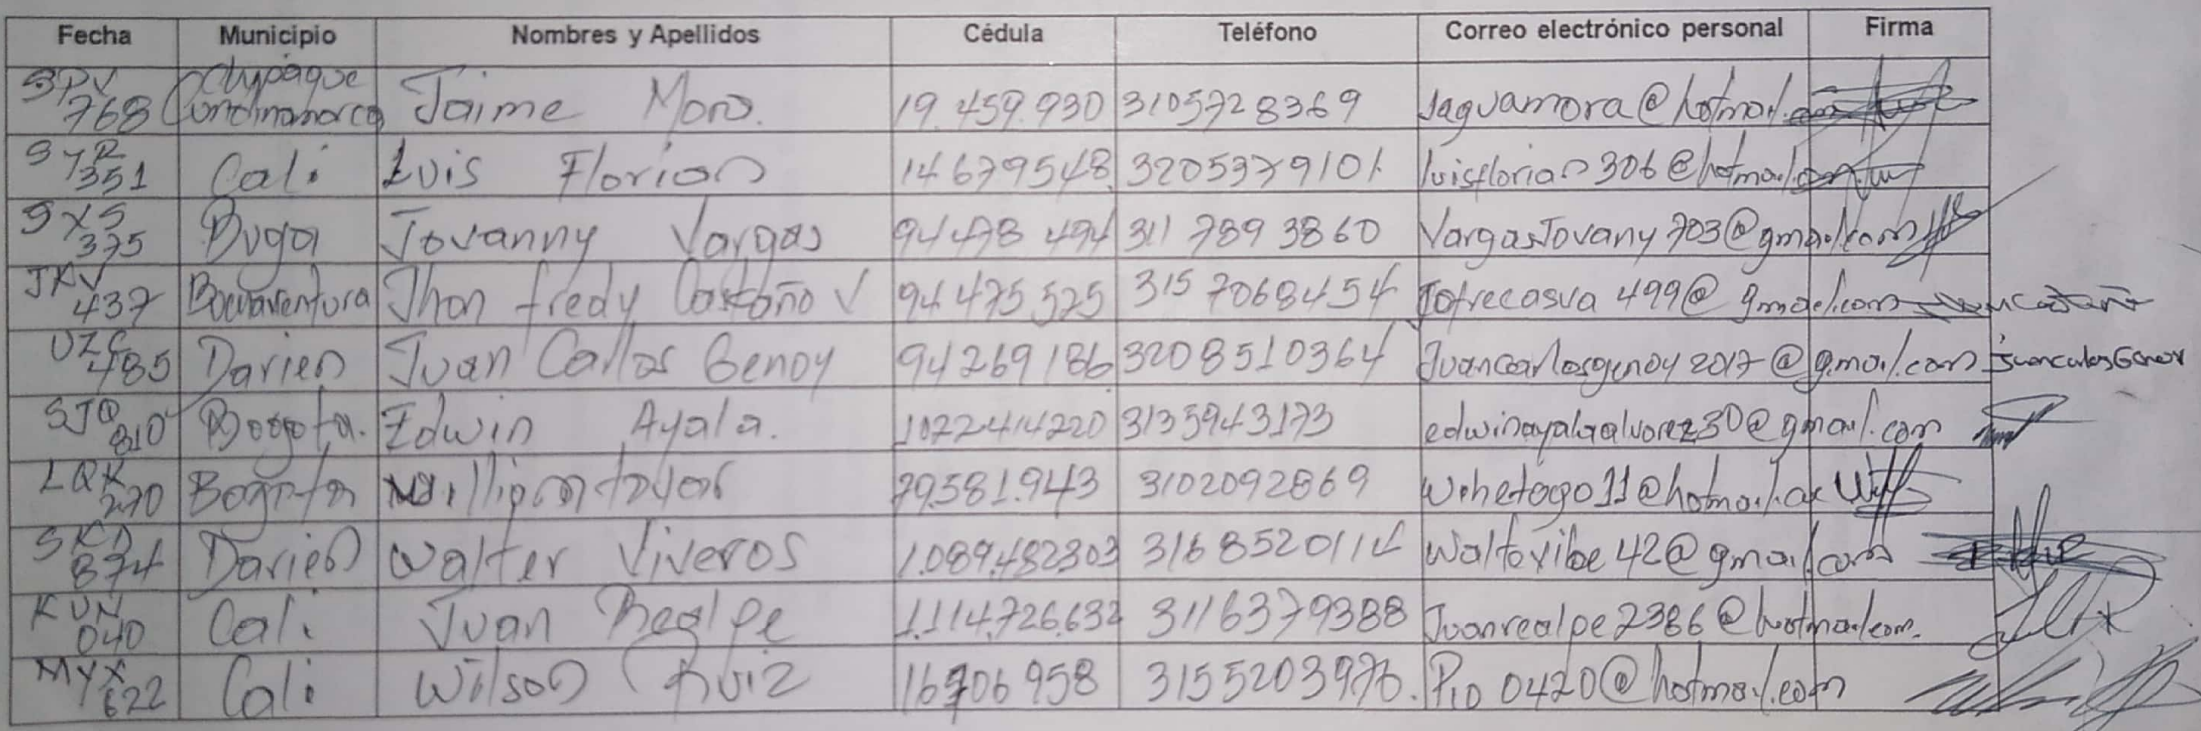 Fecha Municipio Nombres y Apellidos Cédula Teléfono Correo electrónico personal Firma
SPV 768 Chipaque Cundinamarca Jaime Mora. 19.459.930 3105728369 Jaguamora@hotmail.com
SYR 351 Cali Luis Florian 14679548 3205379101 luisflorian306@hotmail.com
SXS 375 Buga Jovanny Vargas 94478494 311 789 3860 VargasJovany703@gmail.com
JKV 437 Buenaventura Jhon fredy Castaño V 94475525 315 7068454 Jofrecasva499@gmail.com
UZC 485 Darien Juan Carlos Genoy 94269186 3208510364 Juancarlosgenoy2017@gmail.com
SJQ 810 Bogota. Edwin Ayala. 1022414220 3135943173 edwinayalaalvarez30@gmail.com
LQK 270 Bogota 79.581.943 3102092869
SKD 874 Darien Walter Viveros 1.089.482303 3168520114 Waltevibe42@gmail.com
KUN 040 Cali Juan Realpe 1.114.726.632 3116379388 Juanrealpe2386@hotmail.com.
MYX 622 Cali Wilson Ruiz 16706958 3155203976. Pio0420@hotmail.com